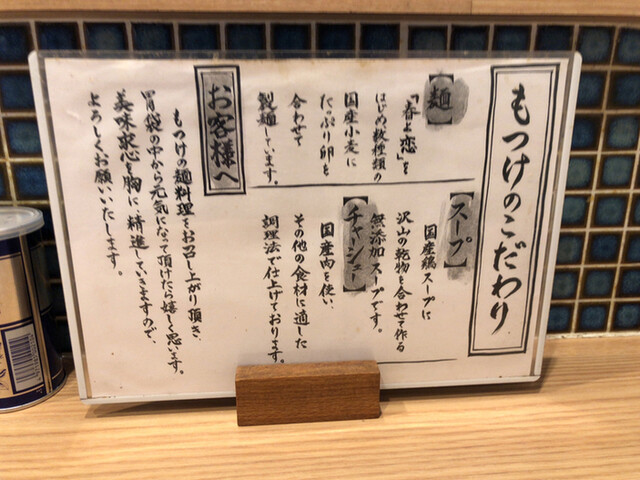 もつけのこだわり
【スープ】
国産鶏スープに
沢山の乾物を合わせて作る
無添加スープです。
【麺】
「春よ恋」を
はじめ数種類の
国産小麦に
たっぷり卵を
合わせて
製麺しています。
【チャーシュー】
国産肉を使い、
その他の食材に適した
調理法で仕上げております。
お客様へ
もつけの麺料理をお召し上がり頂き、
胃袋の中から元気になって頂けたら嬉しく思います。
美味求心を胸に精進していきますので、
よろしくお願いいたします。